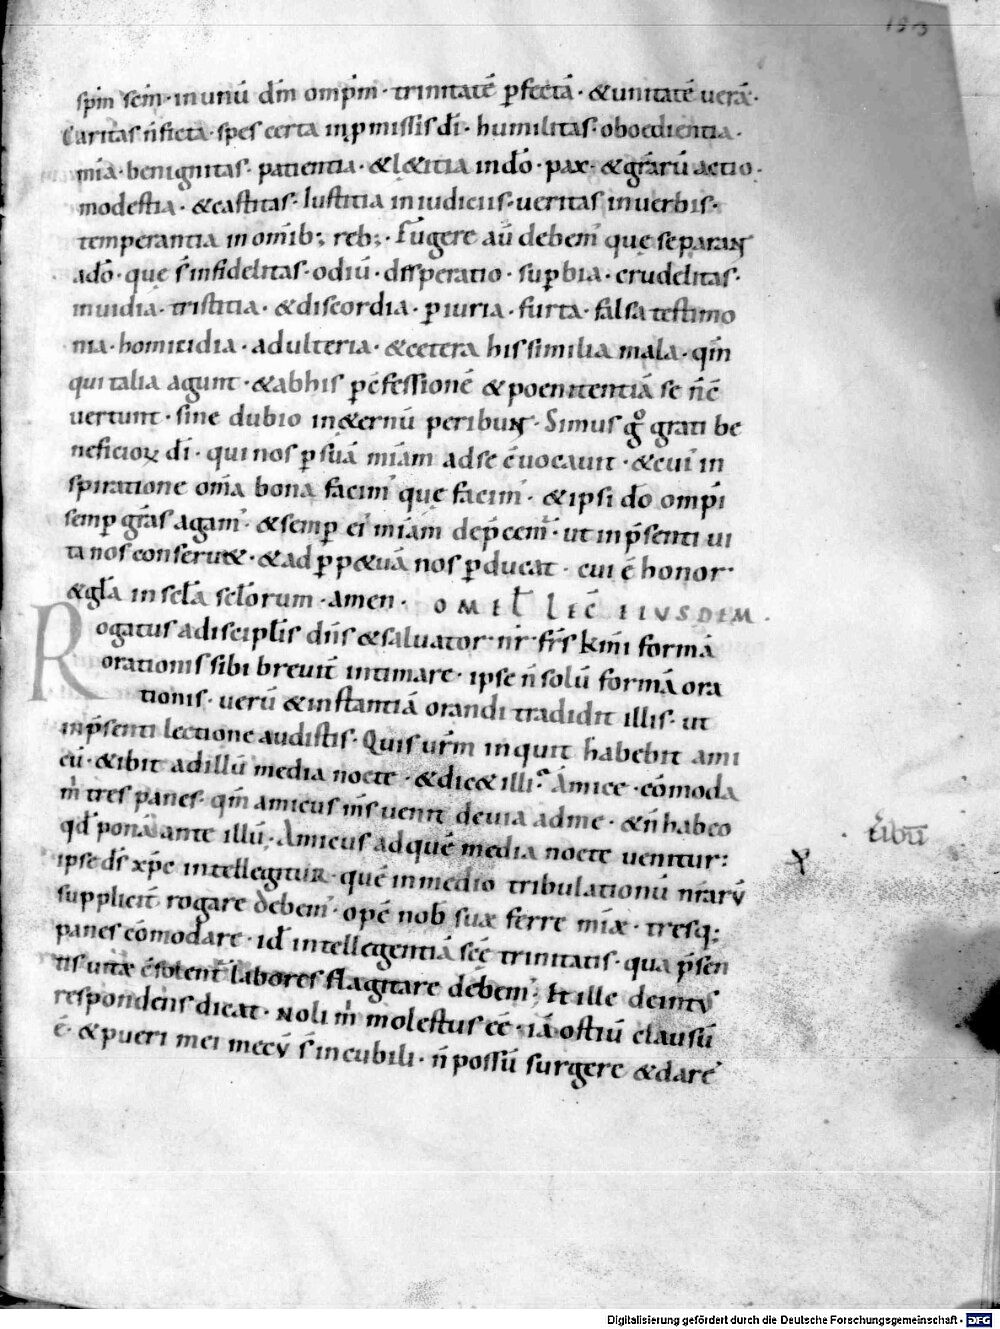 193
spm̄ scm̄ · in unū dm̄ omp̄m · trinitatē ꝑfectā · & unitatē uerā ·
Caritas n̄ ficta · spes certa in ꝓmissis dī · humilitas · oboedientia ·
mīa · benignitas · patientia · & l&itia in dō · pax · & gr̄arū actio ·
modestia · & castitas · Iustitia in iudiciis · ueritas in uerbis ·
temperantia in omīb; reb; · Fugere aū debem' quę separanṫ
a dō · quę s̄ infidelitas · odiū · desperatio · suꝑbia · crudelitas ·
inuidia · tristitia · & discordia · ꝑiuria · furta · falsa testimo
nia · homicidia · adulteria · & cetera his similia mala · qm̄
qui talia agunt · & ab his ꝑ c̄fessionē & poenitentiā se n̄ c̄
uertunt · sine dubio in &ernū peribunt · Simus gͦ grati be
neficioꝝ dī · qui nos ꝑ suā mīam ad se c̄uocauit · & cui' in
spiratione om̄a bona facim' quę facim' · & ipsi dō omp̄i
semꝑ gr̄as agam' · & semꝑ ei' mīam dep̄cem' · ut in p̄senti ui
ta nos conseru& · & ad ꝑp&uā nos ꝑducat · cui ē honor
& gl̄a in scl̄a scl̄orum · amen · OMIL LEC̄ EIUSDEM ·
Rogatus a discipl̄is dn̄s & saluator nr̄ frs̄ kmī formā
orationis sibi breuit̄ intimare · ipse n̄ solū formā ora
tionis · uerū & instantiā orandi tradidit illis · ut
in p̄senti lectione audistis · Quis ur̄m inquit habebit ami
cū · & ibit ad illū media nocte · & dic& illi · Amice · cōmoda
m̄ tres panes · qm̄ amicus m̄s uenit de uia ad me · & n̄ habeo
qd̄ ponā ante illū · Amicus ad quē media nocte uenitur:
ipse ds̄ xp̄c intellegitur · quē in medio tribulationū nr̄arū
supplicit̄ rogare debem' · opē nob̄ suæ ferre mīæ · tresq;
panes cōmodare · id̄ intellegentiā sc̄ę trinitatis · qua p̄sen
tis uitæ c̄solent̄ labores flagitare debem'; Et ille deintus
respondens dicat · Noli m̄ molestus ēē · iā ostiū clausū
ē · & pueri mei mecū s̄ in cubili · n̄ possū surgere & dare
Digitalisierung gefördert durch die Deutsche Forschungsgemeinschaft - DFG